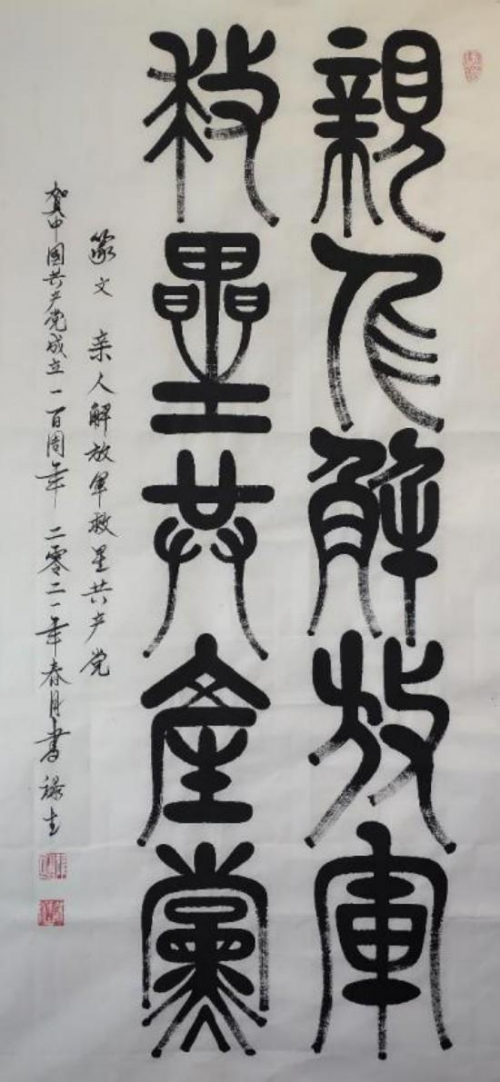 親人解放軍
救星共産黨
篆文 亲人解放军救星共产党
贺中国共产党成立一百周年 二零二一年春月书